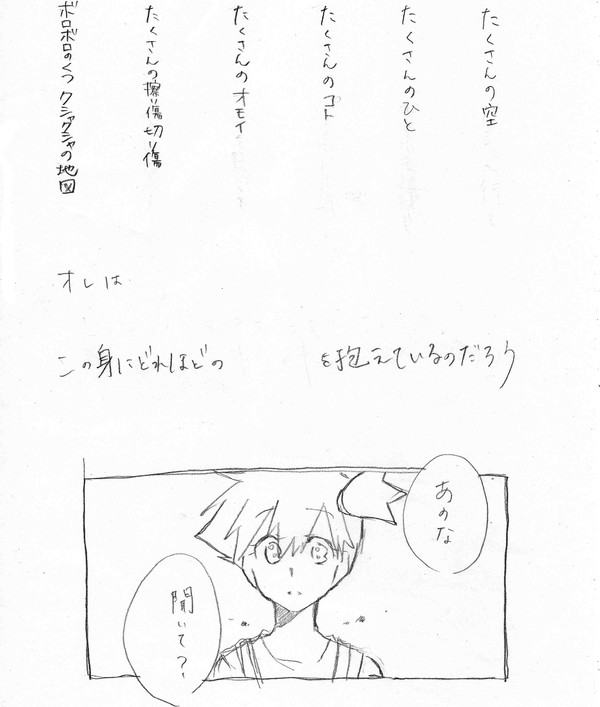 たくさんの空
たくさんのひと
たくさんのコト
たくさんのオモイ
たくさんの擦り傷切り傷
ボロボロのくつ クシャクシャの地図
オレは
この身にどれほどの　　　を抱えているのだろう
あのな
聞いて?